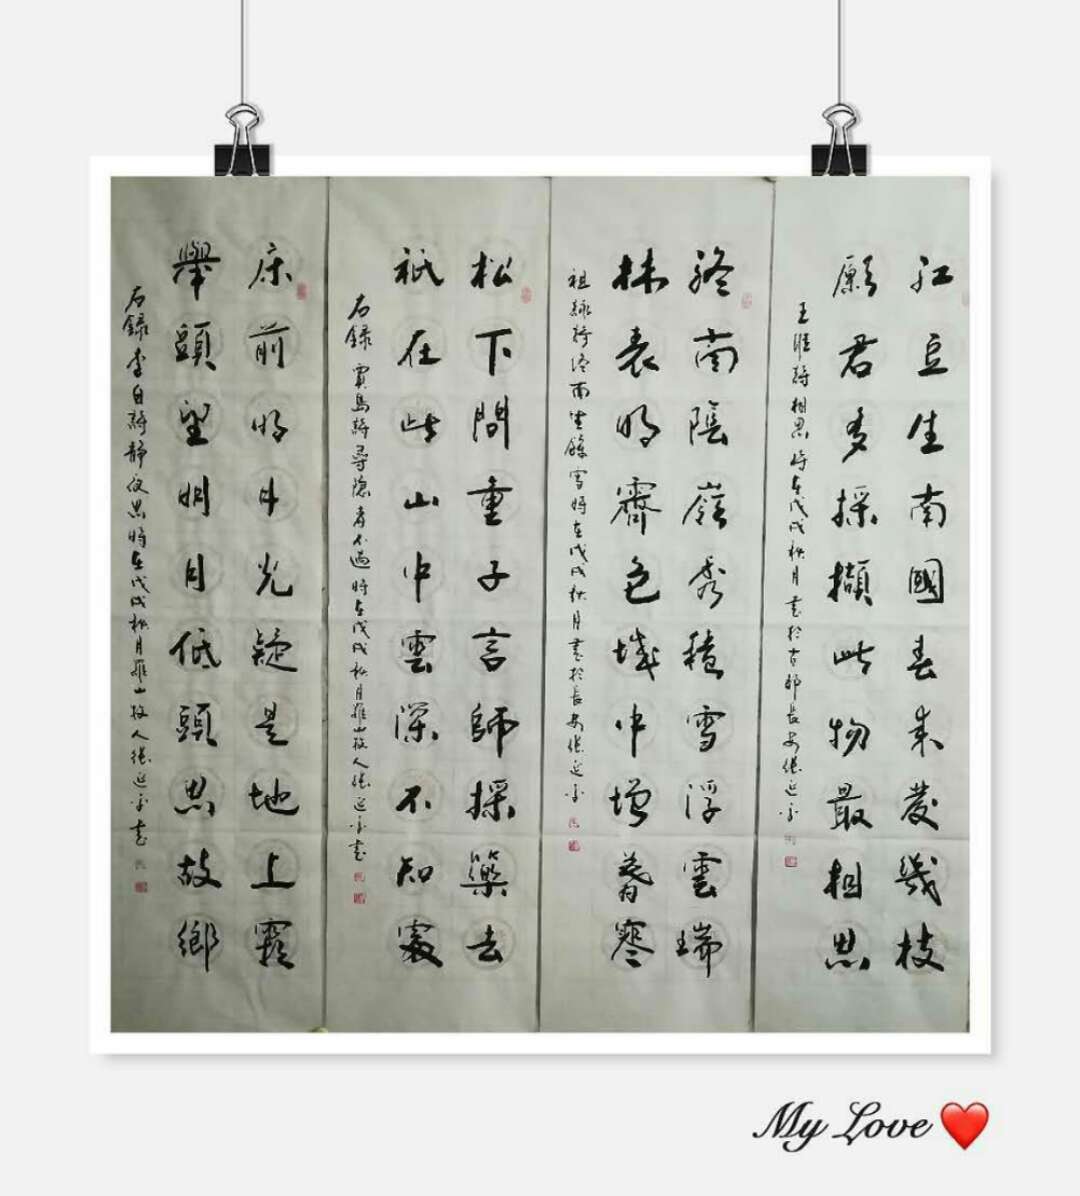 紅豆生南國春來發幾枝
願君多採擷此物最相思
王維詩相思時在戊戌秋月書於古都長安張延平
終南陰嶺秀積雪浮雲端
林表明霽色城中增暮寒
祖詠詩終南望餘雪時在戊戌秋月書於長安張延平
松下問童子言師採藥去
祇在此山中雲深不知處
右錄賈島詩尋隱者不遇時在戊戌秋月山故人張延平書
床前明月光疑是地上霜
舉頭望明月低頭思故鄉
右錄李白詩靜夜思時在戊戌秋月山故人張延平書
My Love